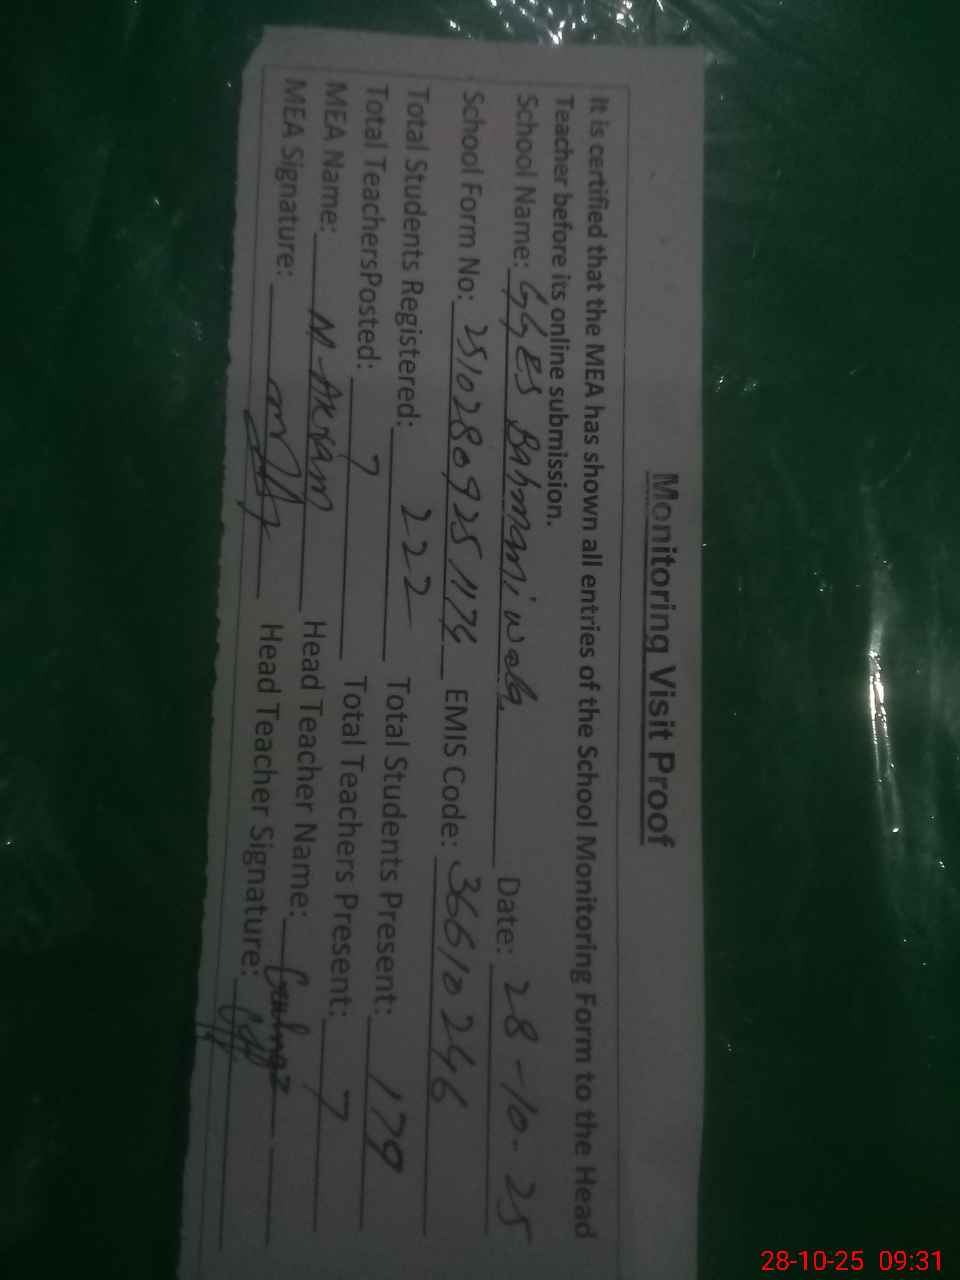 Monitoring Visit Proof
It is certified that the MEA has shown all entries of the School Monitoring Form to the Head
Teacher before its online submission.
School Name: GGES Bahmani wala Date: 28-10-25
School Form No: EMIS Code: 36610246
Total Students Registered: 222 Total Students Present: 179
Total TeachersPosted: 7 Total Teachers Present: 7
MEA Name: M-Akram Head Teacher Name:
MEA Signature: Head Teacher Signature:
28-10-25 09:31